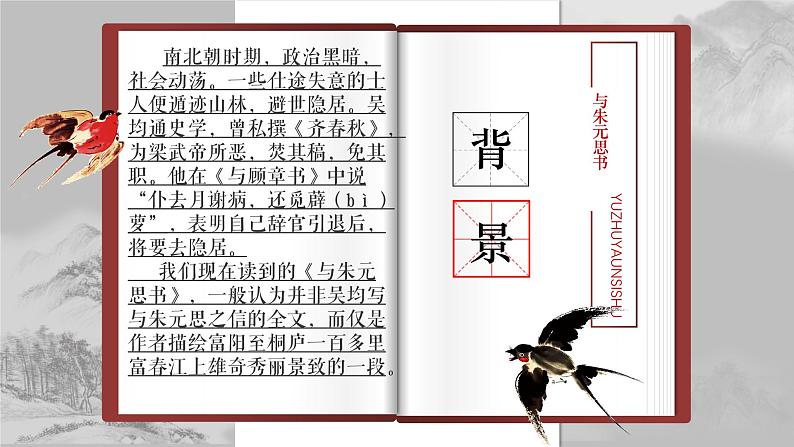 南北朝时期，政治黑暗，
社会动荡。一些仕途失意的士
人便遁迹山林，避世隐居。吴
均通史学，曾私撰《齐春秋》，
为梁武帝所恶，焚其稿，免其
职。他在《与顾章书》中说
“仆去月谢病，还觅薜（bì）
萝”，表明自己辞官引退后，
将要去隐居。
我们现在读到的《与朱元
思书》，一般认为并非吴均写
与朱元思之信的全文，而仅是
作者描绘富阳至桐庐一百多里
富春江上雄奇秀丽景致的一段。
背
景
与朱元思书
YUZHUYAUNSISHU